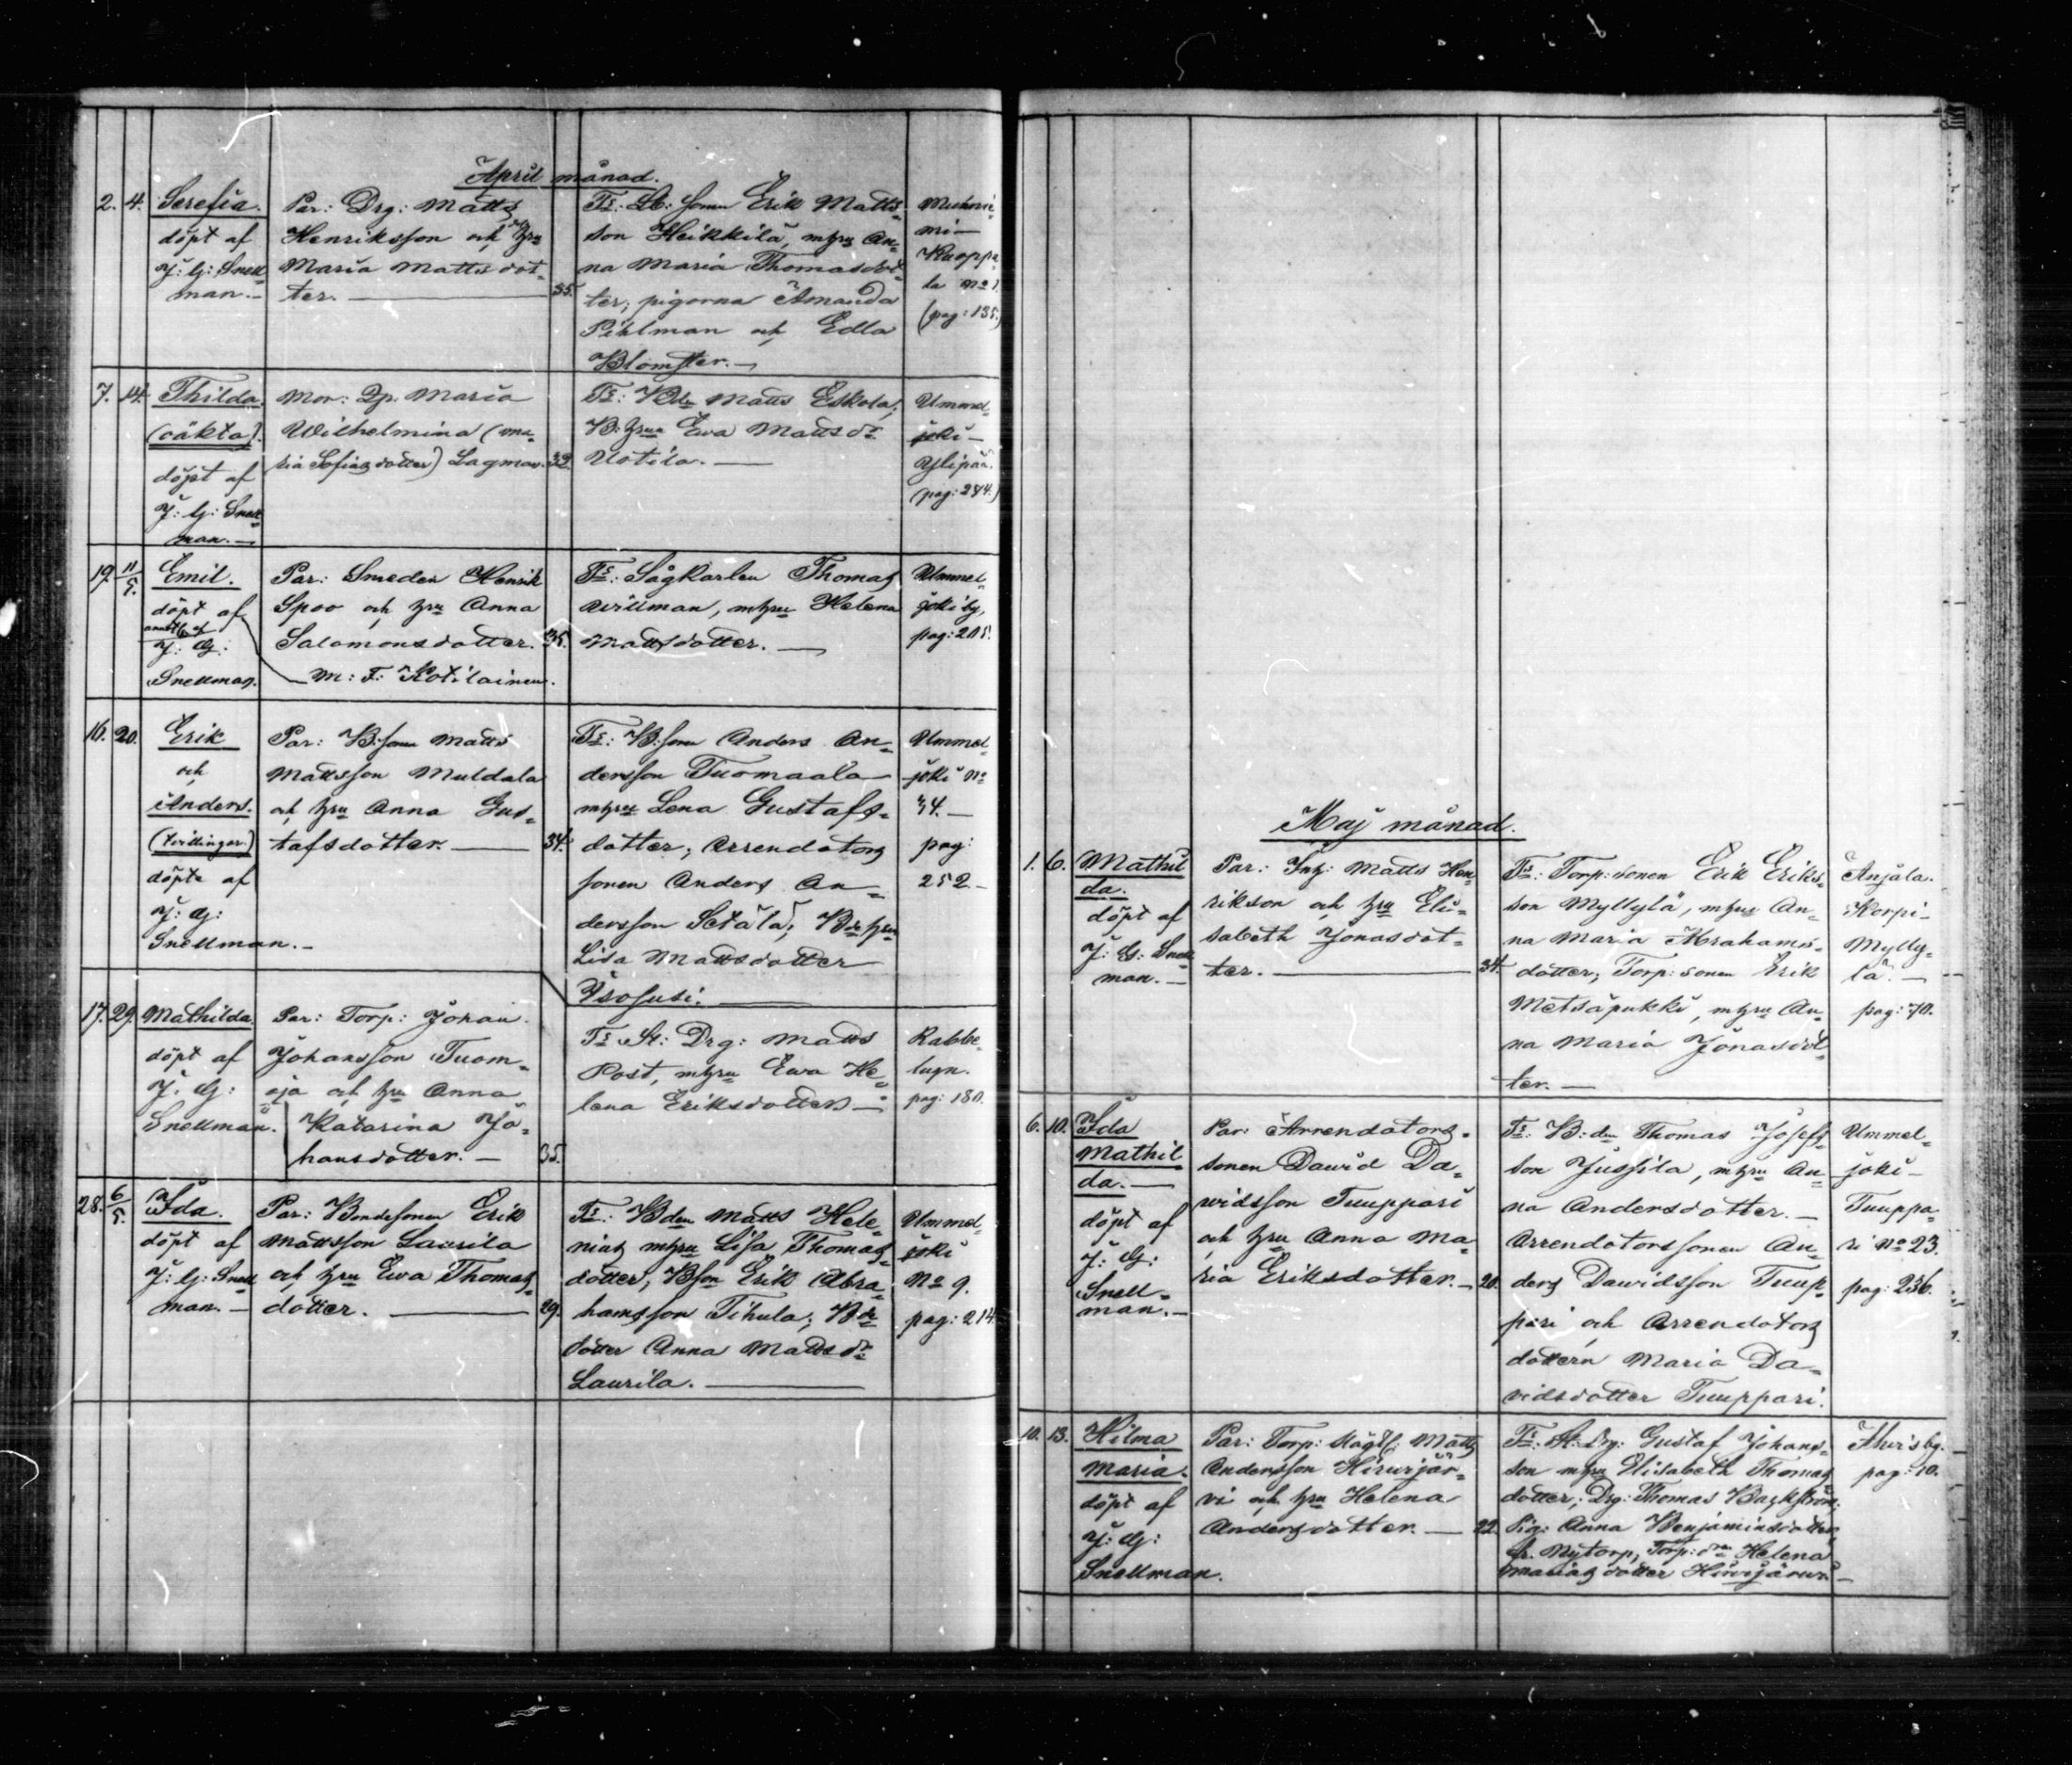 April månad.
2. 4. Serefia.
döpt af
J: G: Snell
man.-
Par: Drg: Matts
Henriksson och hru
Maria Mattsdot
ter. — 35.
Ts: St: sonen Erik Matts
son Heikkilä, mhru An
na Maria Thomasdot
ter; pigorna Amanda
Pihlman och Edla
Blomster.—
Muhni
mi—
Kuoppa
la No 1.
(pag: 135.)
7. 14. Thilda.
(oäkta).
döpt af
J: G: Snell
man.—
Mor: Qp. Maria
Wilhelmina (Ma
ria Sofias dotter) Lagman. 32.
Ts: Bdn Matts Eskola;
B: hrun Ewa Mattsdr
Uotila.—
Ummel
joki—
Ylipää.
(pag: 284.)
19. 11/5. Emil.
döpt af
J: G:
Snellman.
Par: Smeden Henrik
Spoo och hru Anna
Salomonsdotter. 35.
M: F. Kotilainen.
Ts: Sågkarlen Thomas
Willman, mhru Helena
Mattsdotter.—
Ummel
joki by,
pag: 205.
16. 20. Erik
och
Anders.
(tvillingar)
döpta af
J: G:
Snellman.-
Par: B: sonen Matts
Mattsson Muldala
och hru Anna Gus
tafsdotter. — 34.
Ts: B: sonen Anders An
dersson Tuomaala
mhru Lena Gustafs
dotter; Arrendators
sonen Anders An
dersson Setälä; Bde hrun
Lisa Mattsdotter
Isosusi.—
Ummel
joki No
34.—
pag:
252.—
17. 29. Mathilda.
döpt af
J. G:
Snellman.
Par: Torp: Johan
Johansson Tuom
oja och hru Anna
Katarina Jo
hansdotter.— 35.
Ts St: Drg: Matts
Post, mhru Ewa He
lena Eriksdotter—
Rabbe
lugn.
pag: 180.
28. 6/5. Ida.
döpt af
J: G: Snell
man.—
Par: Bondesonen Erik
Mattsson Laurila
och hru Ewa Thomas
dotter. — 29.
Ts: Bden Matts Hele
nias mhru Lisa Thomas
dotter; Bson Erik Abra
hamsson Tihula; Bde
dotter Anna Mattsdr
Laurila.—
Ummel
joki
No 9.
pag: 214.
Maj månad.
1. 6. Mathil
da.
döpt af
J: G: Snell
man.—
Par: Inh: Matts Hen
rikson och hru Eli
sabeth Jonasdot
ter. — 34.
Ts: Torp: sonen Erik Eriks
son Myllylä, mhru An
na Maria Abrahams
dotter; Torp: sonen Erik
Metsäpukki, mhru An
na Maria Jonasdot
ter.—
Anjala.
Korpi-
Mylly
lä.—
pag: 70.
6. 10. Ida
Mathil
da.—
döpt af
J: G:
Snell
man.—
Par: Arrendators
sonen Dawid Da
widsson Tuuppari
och hru Anna Ma
ria Eriksdotter.— 20.
Ts: B: den Thomas Josefs
son Jussila, mhru An
na Andersdotter.—
Arrendatorssonen An
ders Dawidsson Tuup
pari och Arrendators
dottern Maria Da
vidsdotter Tuuppari.
Ummel
joki—
Tuuppa
ri No 23.
pag: 236.
10. 13. Hilma
Maria.
döpt af
J: G:
Snellman.
Par: Torp: Matts
Andersson Hirvijär
vi och hru Helena
Andersdotter.— 22.
Ts: St: Drg: Gustaf Johans
son mhru Elisabeth Thomas
dotter; Drg: Thomas Backström;
Pig: Anna Benjaminsdotter
fr. Nytorp; Torp: drn Helena
Mariasdotter Hirvijärvi—
pag: 10.